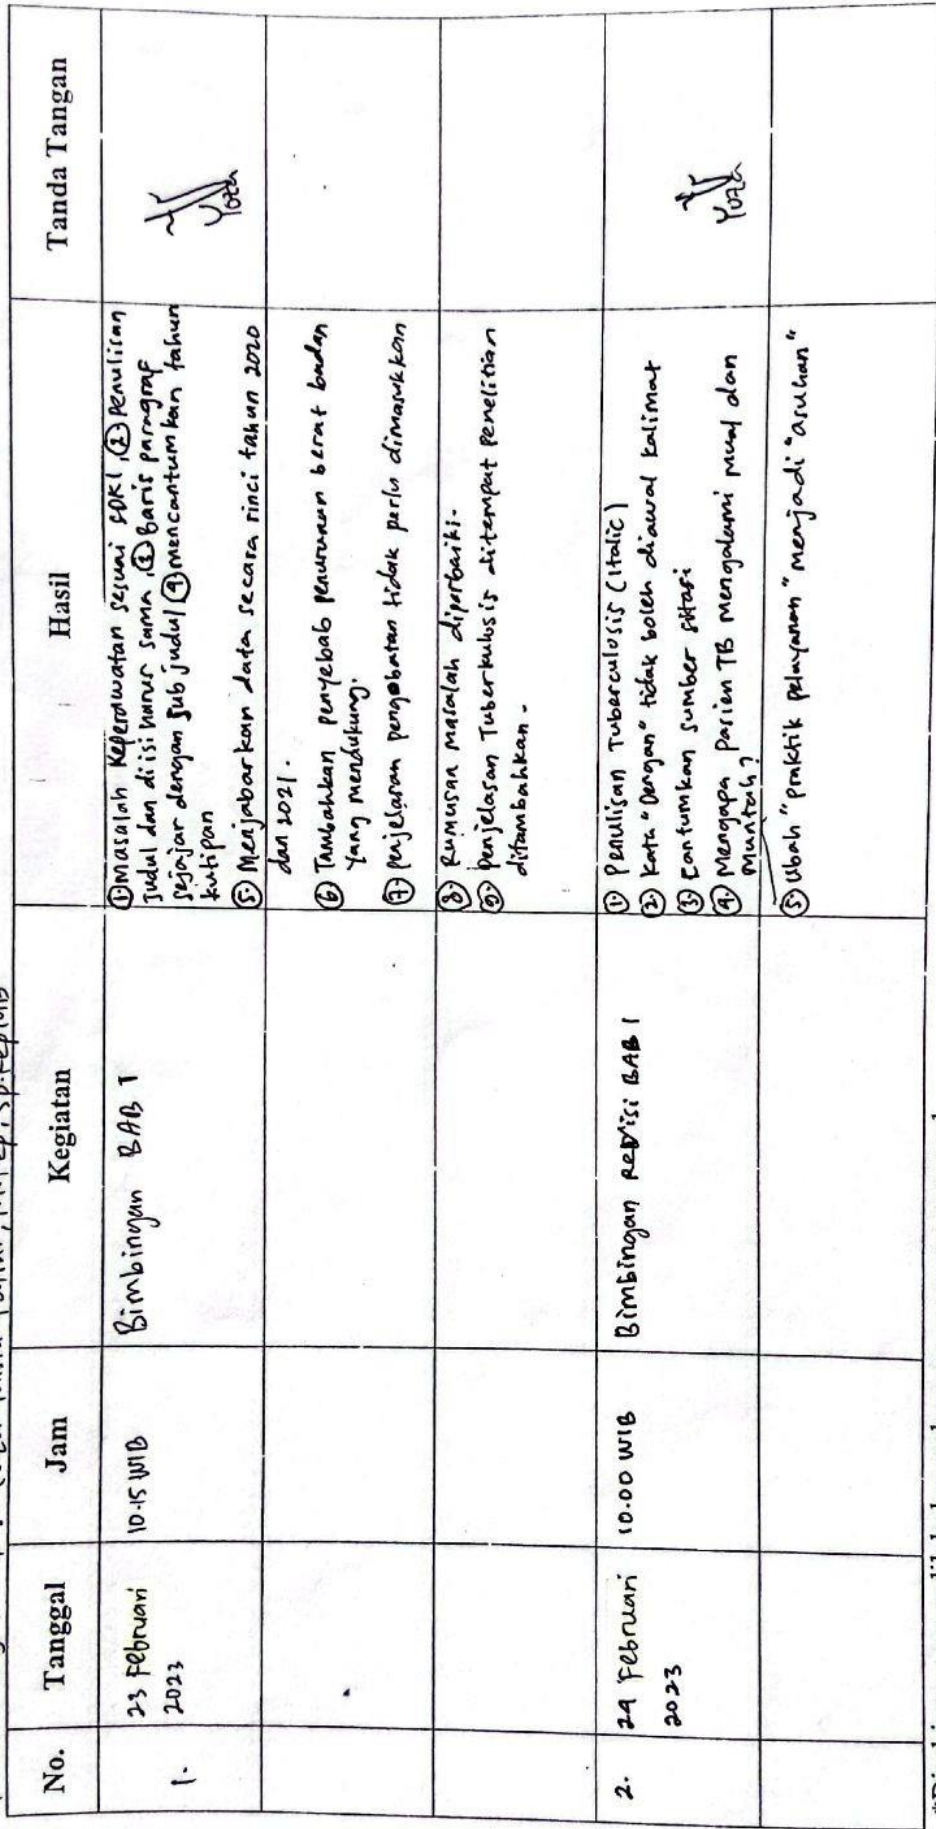 No. Tanggal Jam Kegiatan Hasil Tanda Tangan
1. 23 Februari 2023 10.15 WIB Bimbingan BAB I
① Masalah Keperawatan sesuai SDKI, ② Penulisan
Judul dan diisi harus sama, ③ Baris paragraf
sejajar dengan sub judul ④ mencantumkan tahun
kutipan
⑤ Menjabarkan data secara rinci tahun 2020
dan 2021.
⑥ Tambahkan penyebab penurunan berat badan
yang mendukung.
⑦ penjelasan pengobatan tidak perlu dimasukkan
⑧ Rumusan masalah diperbaiki.
⑨ penjelasan Tuberkulosis ditempat penelitian
ditambahkan.
Yoza
2. 24 Februari 2023 10.00 WIB Bimbingan Revisi BAB I
① Penulisan Tuberculosis (Italic)
② Kata "Dengan" tidak boleh diawal kalimat
③ Cantumkan sumber sitasi
④ Mengapa pasien TB mengalami mual dan
Muntah?
⑤ Ubah "praktik pelayanan" menjadi "asuhan"
Yoza